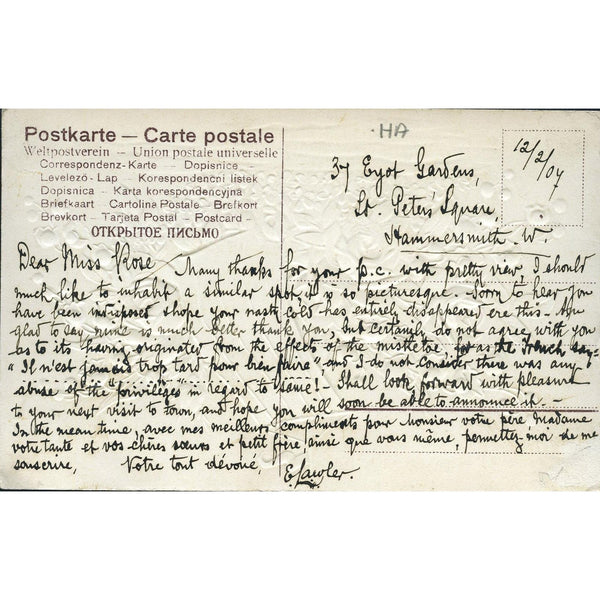 HA
Postkarte — Carte postale
Weltpostverein — Union postale universelle
Correspondenz-Karte — Dopisnice
Levelező-Lap — Korespondenční listek
Dopisnica — Karta korespondencyjna
Briefkaart — Cartolina Postale — Brefkort
Brevkort — Tarjeta Postal — Postcard —
ОТКРЫТОЕ ПИСЬМО
12/2/07
37 Eyot Gardens,
St. Peters' Square,
Hammersmith. W.
Dear Miss Rose Many thanks for your p.c. with pretty view, I should
much like to inhabit a similar spot, it is so picturesque. Sorry to hear you
have been indisposed & hope your nasty cold has entirely disappeared ere this. Am
glad to say mine is much better thank you, but certainly do not agree with you
as to its having originated from the effects of the mistletoe, for as the French say-
"Il n'est jamais trop tard pour bien faire" and I do not consider there was any
abuse of the "privileges" in regard to same! - Shall look forward with pleasure
to your next visit to town, and hope you will soon be able to announce it -
In the mean time, avec mes meilleurs compliments pour Monsieur votre père, Madame
votre tante et vos chères soeurs et petit frère, ainsi que vous même, permettez-moi de me
souscrire, Votre tout dévoué, E. Lawler.